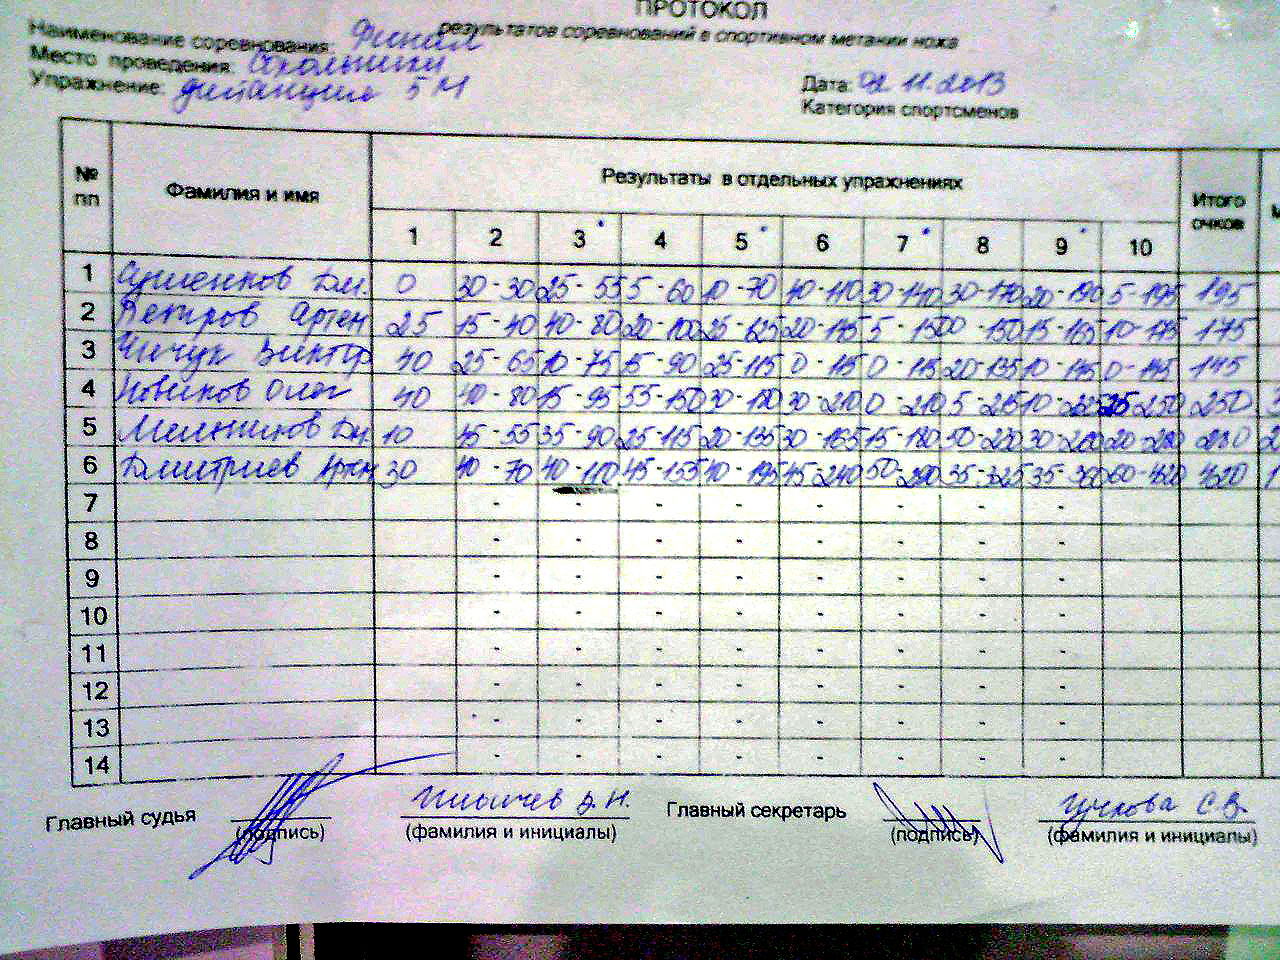 ПРОТОКОЛ
результатов соревнований в спортивном метании ножа
Наименование соревнования: Финал
Место проведения: Сокольники
Упражнение: дистанция 5 М
Дата: 02.11.2013
Категория спортсменов
№ пп Фамилия и имя Результаты в отдельных упражнениях Итого очков
1 2 3 4 5 6 7 8 9 10
1 Дм. 0 30-30 25-55 5-60 10-70 40-110 30-140 30-170 20-190 5-195 195
2 Петров Артем 25 15-40 40-80 20-100 25-125 20-145 5-150 0-150 15-165 10-175 175
3 Виктор 40 25-65 10-75 15-90 25-115 0-115 0-115 20-135 10-145 0-145 145
4 Новиков Олег 40 40-80 15-95 55-150 30-180 30-210 0-210 5-215 10-225 25-250 250
5 Мельников Дм. 10 45-55 35-90 25-115 20-135 30-165 15-180 50-230 30-260 20-280 280
6 Дмитриев Артем 30 40-70 40-110 45-155 40-195 45-240 50-290 35-325 35-360 60-420 420
7 - - - - - - - -
8 - - - - - - - -
9 - - - - - - - -
10 - - - - - - - -
11 - - - - - - - -
12 - - - - - - - -
13 - - - - - - - -
14 - - - - - - - -
Главный судья Главный секретарь С.В.
(подпись) (фамилия и инициалы) (подпись) (фамилия и инициалы)